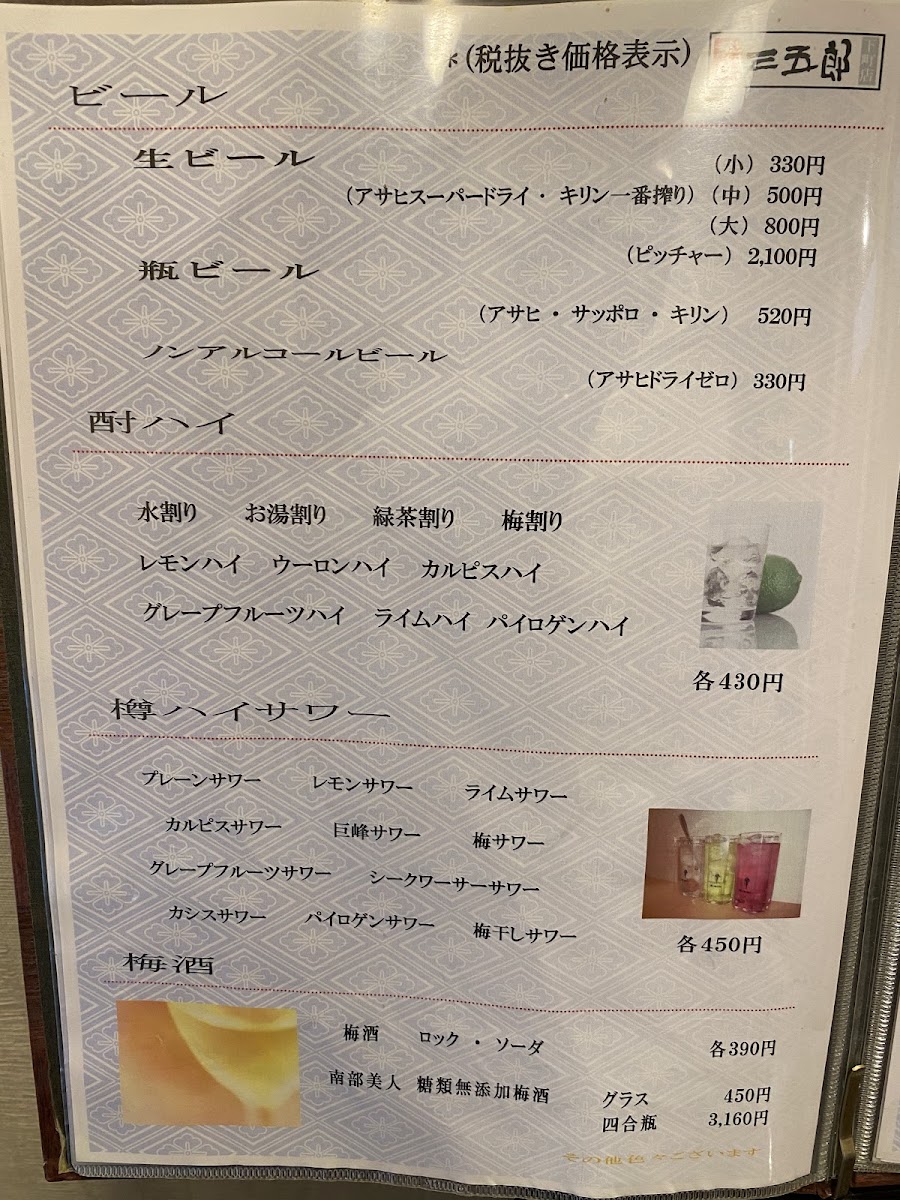 (税抜き価格表示)
三五郎
ビール
生ビール
(小) 330円
(アサヒスーパードライ・キリン一番搾り) (中) 500円
(大) 800円
(ピッチャー) 2,100円
瓶ビール
(アサヒ・サッポロ・キリン) 520円
ノンアルコールビール
(アサヒドライゼロ) 330円
酎ハイ
水割り お湯割り 緑茶割り 梅割り
レモンハイ ウーロンハイ カルピスハイ
グレープフルーツハイ ライムハイ パイロゲンハイ
各430円
樽ハイサワー
プレーンサワー レモンサワー ライムサワー
カルピスサワー 巨峰サワー 梅サワー
グレープフルーツサワー シークワーサーサワー
カシスサワー パイロゲンサワー 梅干しサワー
各450円
梅酒
梅酒 ロック・ソーダ 各390円
南部美人 糖類無添加梅酒 グラス 450円
四合瓶 3,160円
その他色々ございます